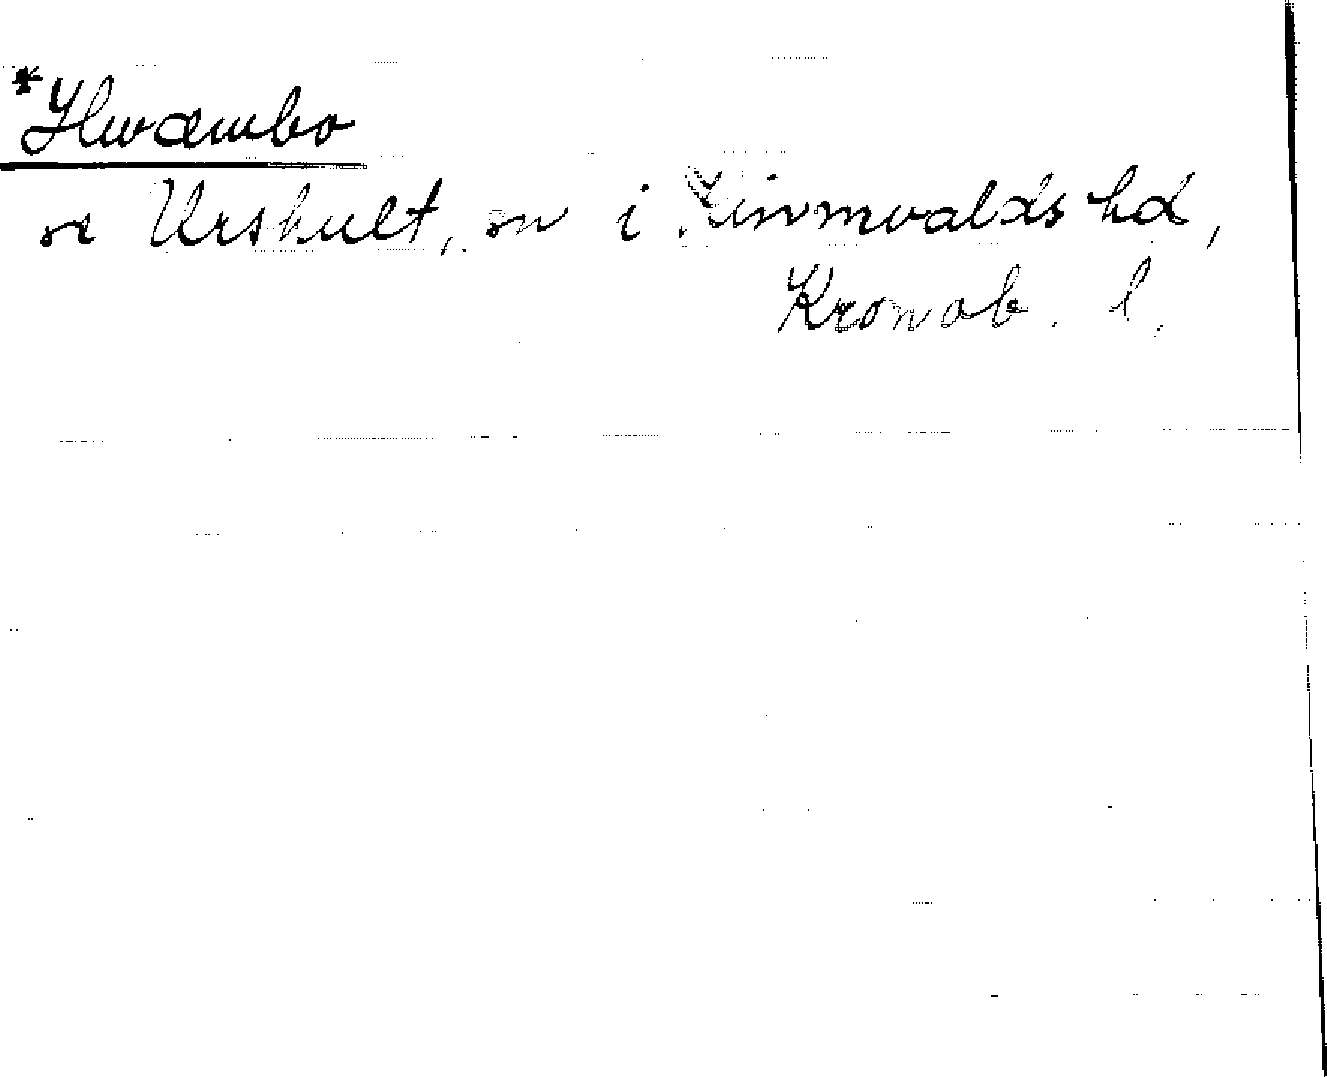 *Hwæmbo
se Urshult, sn i Kinnevalds hd,
Kronob. l.